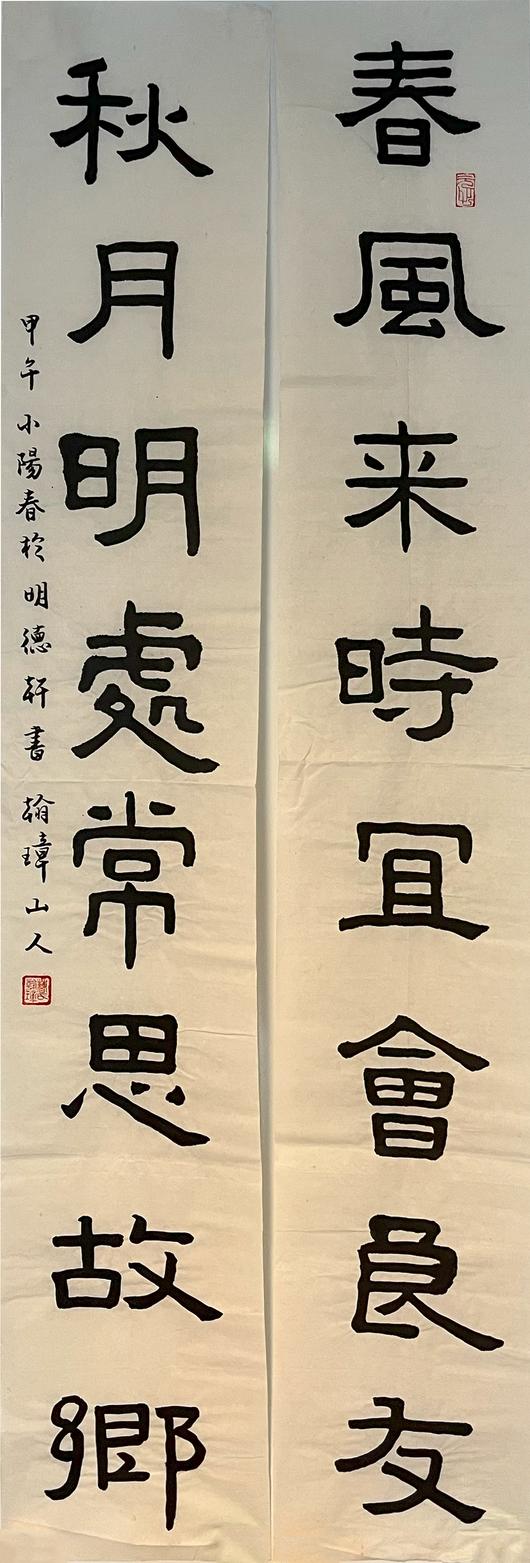 春風来時冝會良友
秋月明處常思故鄉
甲午小陽春於明德軒書 翰璋山人